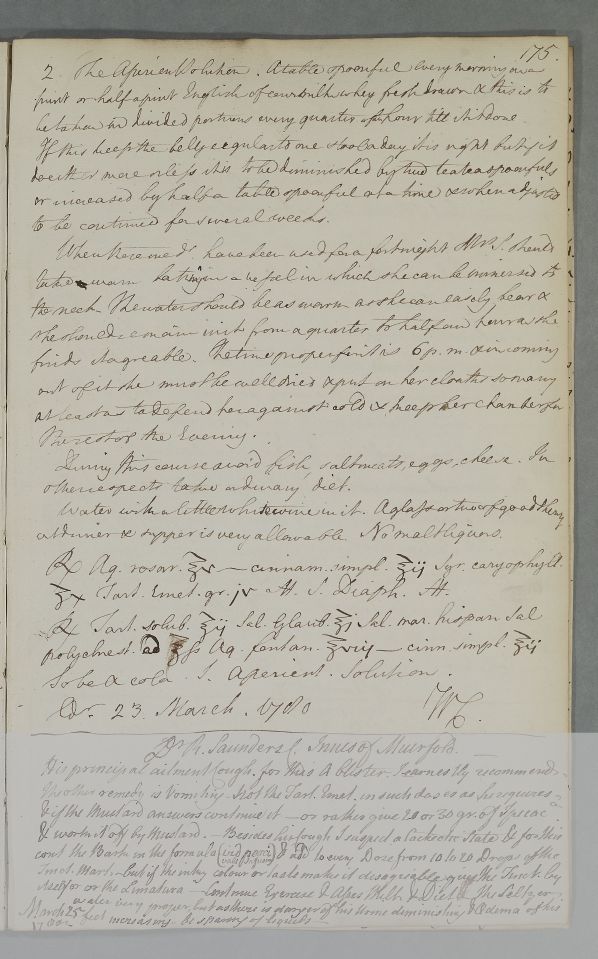 175.
2 The Aperient Solution. A table spoonful every morning in a
pint or half a pint English of cows milk whey fresh drawn & this is to
be taken in divided portions every quarter of an hour till it is done.
If this keeps the belly regular to one stool a day it is right but if it
does either more or less it is to be diminished by two tea teaspoonfuls
or increased by half a table spoonful at a time & when adjusted
to be continued for several weeks.
When these med. have been used for a fortnight Mrs. S. should
take a warm bathing in a vessel in which she can be immersed to
the neck. The water should be as warm as she can easily bear &
she should remain in it from a quarter to half an hour as she
finds it agreable. The time proper for it is 6 p.m. & in coming
out of it she must be well dried & put on her cloaths so warm
at least as to defend her against cold & keep her chamber for
the rest of the Evening.
During this course avoid fish, salt meats, eggs, cheese. In
other respects take ordinary diet.
Water with a little white wine in it. A glass or two of good Sherry
at dinner & supper is very allowable. No malt liquors.
℞ Aq. rosar. ℥v — cinnam. simpl. ℥ij Syr. caryophyll.
℥x Tart. Emet. gr. jv M. S. Diaph. M.
℞ Tart. solub. ℥ij Sal. Glaub. ℥j Sal. mar. hispan Sal
polychrest. ad ℥ſs Aq. fontan. ℥viij — cinn. simpl. ℥ij
Solve & cola. S. Aperient. Solution.
Edr. 23. March. 1780 WC.
Dr R. Saunders f. Innes of Muirfold.
His principal ailment Cough. for this A blister I earnestly recommend.
The other remedy is Vomiting – Not the Tart. Emet. in such doses as he requires
& if the Mustard answers continue it – or rather give 20 or 30 gr. of Ipecac.
& work it off by Mustard. – Besides his cough I suspect a Cachectic State & for this
cont the Bark in the formula & add to every Dose from 10 to 20 Drops of the
Tinct. Mart. – but if the inky colour or taste make it disagreeable give the Tinct. by
itself or or the Limatura – Continue Exercise & Asses Milk & Diet. The Seltzer
water very proper, but as there is danger of his Urine diminishing & Oedema of his
feet increasing be sparing of liquids
March 25
1780